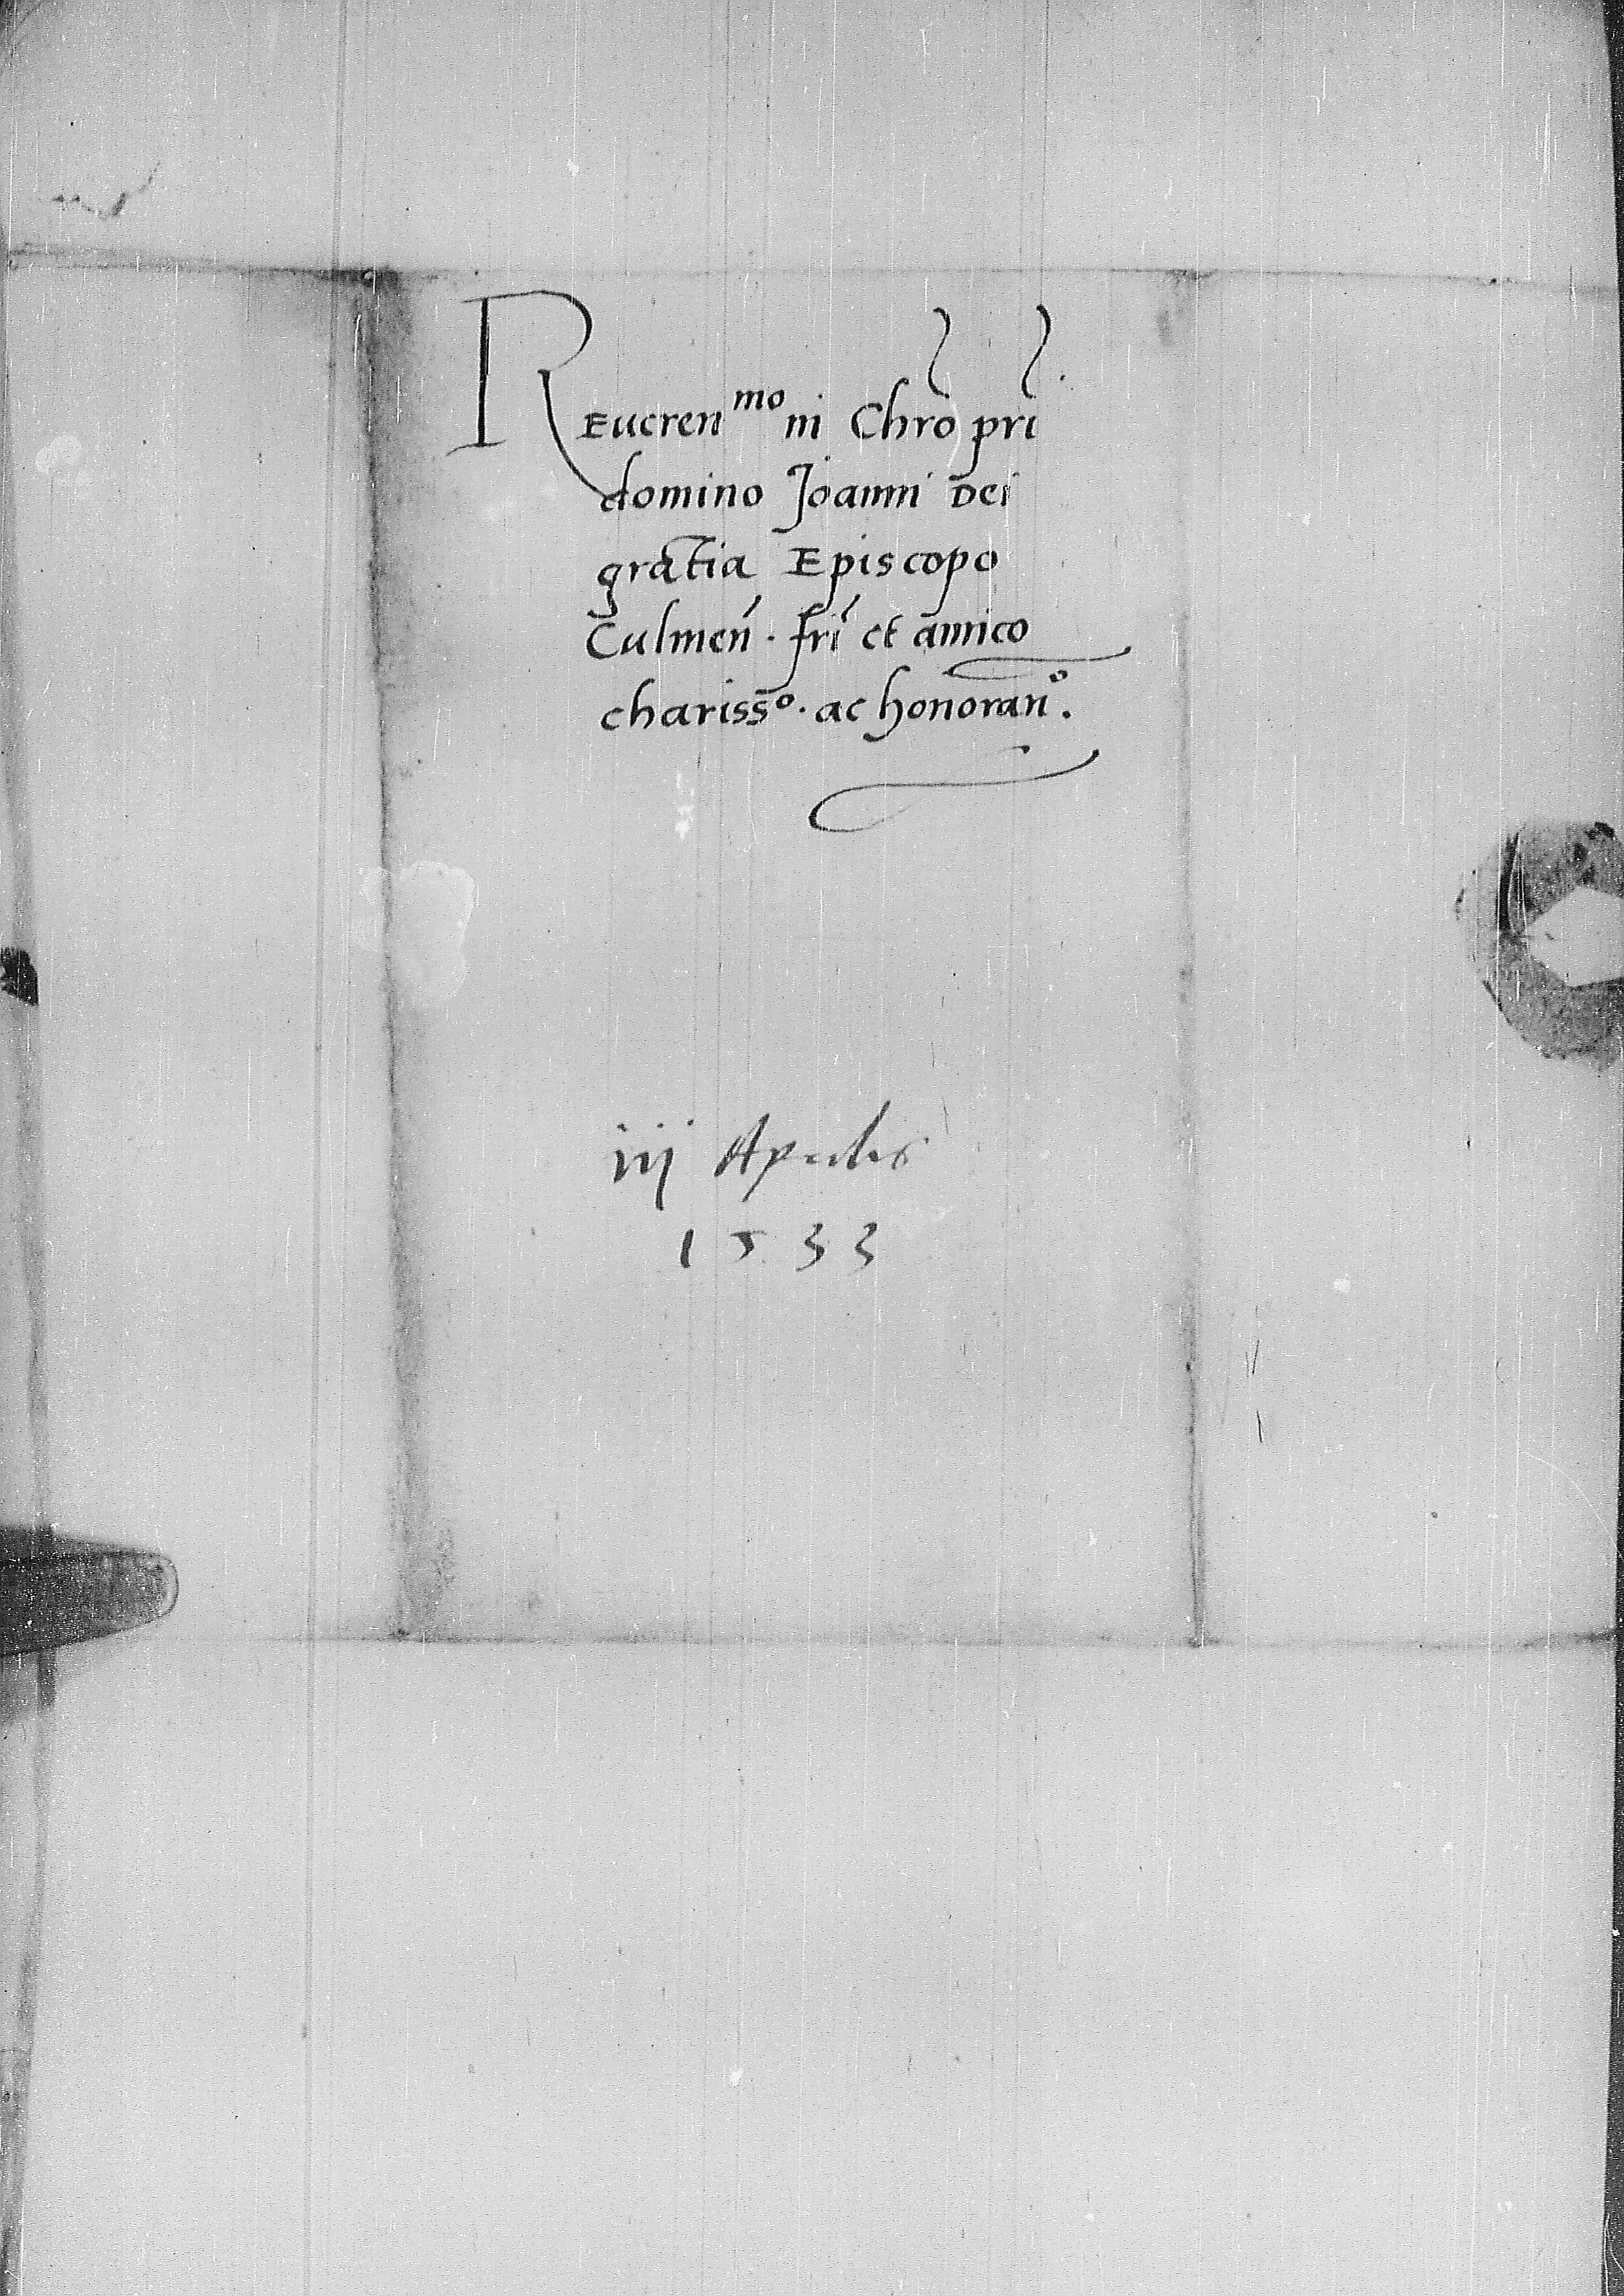 REueren^mo in Chr̄o pr̄i
domino Joanni Dei
gratia Episcopo
Culmen̄. fr̄i et amico
chariss̄º. ac honoran̄º.
iij Aprilis
1533